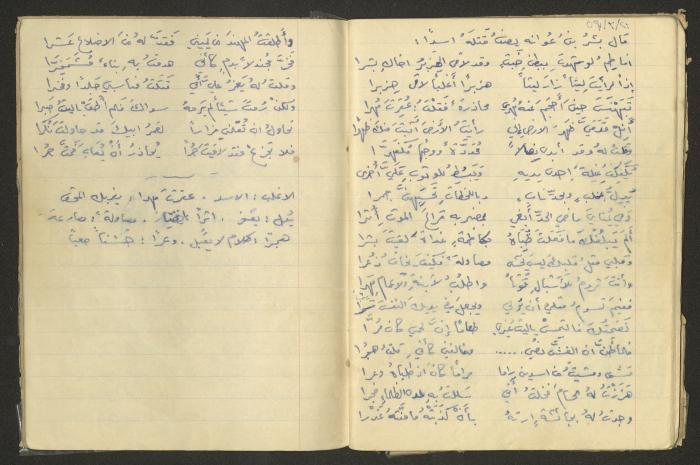 قال بشر بن عوانه يصف قتله اسدًا:
أفاطم لو شهدت ببطن خبت وقد لاقى الهزبر اخاك بشرا
إذاً لرأيت ليثاً زار ليثاً هزبراً أغلباً لاقى هزبرا
تبهنس حين أحجم عنه مهري محاذرة فقلت عقرت مهرا
أنل قدمي ظهر الارض إني رأيت الأرض أثبت منك ظهرا
وقلت له وقد أبدى نصالاً محددة ووجهاً مكفهرا
يكفكف غيلة احدى يديه ويبسط للوثوب علي أخرى
يدل بمخلب وبحد ناب وباللحظات تحسبهن جمرا
وفي يمناي ماضي الحد أبقى بمضربه قراع الموت أثرا
ألم يبلغك ما فعلت ظباه بكاظمة غداة لقيت عمرا
وقلبي مثل قلبك ليس يخشى مصاولة فكيف يخاف ذعرا
وأنت تروم للأشبال قوتاً واطلب لابنة الاعمام مهرا
ففيم تسوم مثلي أن يولي ويجعل في يديك النفس قسرا
نصحتك فالتمس يا ليث غيري طعاماً إن لحمي كان مرّا
فلما ظن ان الغش نصحي ...... وخالفني كأني قلت هجرا
مشى ومشيت من اسدين راما مراماً كان اذ طلباه وعرا
هززت له الحسام فخلت أني سللت به لدى الظلماء فجرا
وجدت له بجائشة أرته بأن كذبته ما منته غدرا
وأطلقت المهند من يميني فقد له من الاضلاع عشرا
فخر مجندلاً بدم كأني هدمت به بناء مشمخرا
وقلت له يعز علي أني قتلت مناسبي جلداً وفخرا
ولكن رمت شيئاً لم يرمه سواك فلم أطق يا ليث صبرا
تحاول ان تعلمني فراراً لعمر ابيك قد حاولت نكرا
فلا تجزع فقد لاقيت حراً يحاذر أن يعاب فمت حرا
الاغلب: الاسد. عقرت مهرا:
هجرا: كلام لا يقبل. وعرا: خشناً صعباً